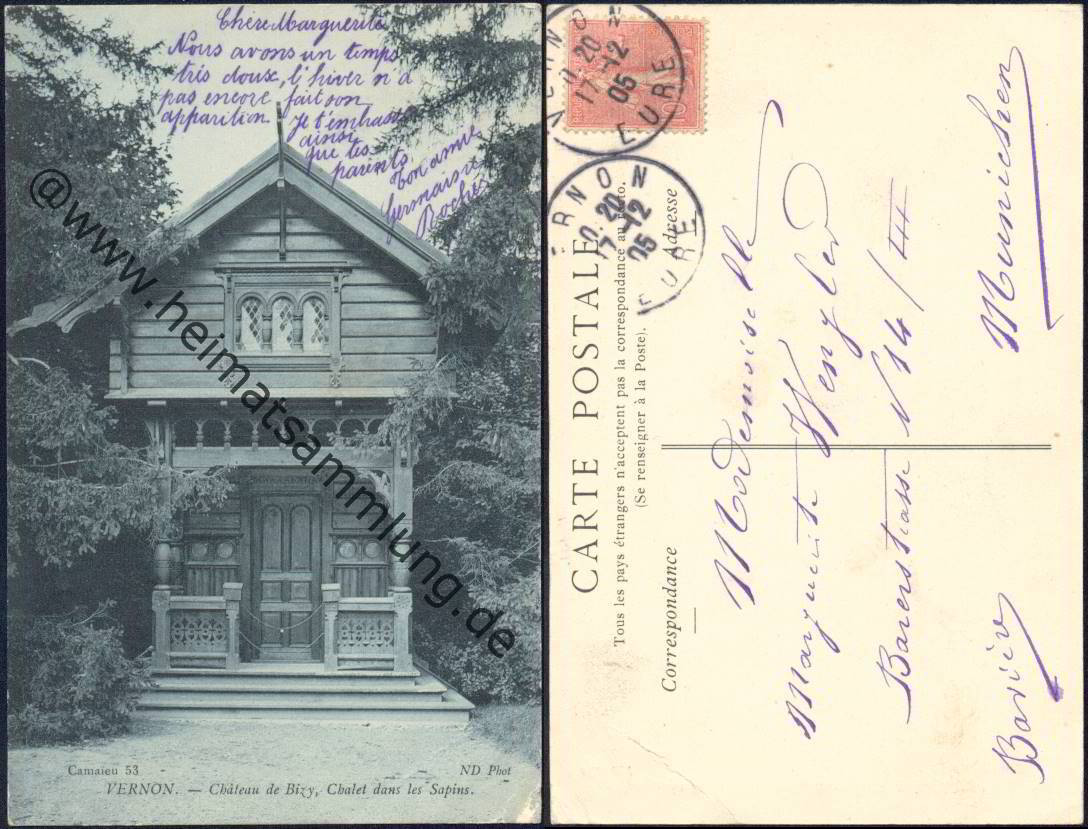 Chère Marguerite
Nous avons un temps
très doux, l'hiver n'a
pas encore fait son
apparition. Je t'embrasse
ainsi
que tes
parents
ton amie
Germaine
@www.heimatsammlung.de
Camaïeu 53
ND Phot
VERNON. — Château de Bizy, Chalet dans les Sapins.
VERNON
EURE
17-12
05
VERNON
EURE
17-12
05
CARTE POSTALE
Tous les pays étrangers n'acceptent pas la correspondance au recto.
(Se renseigner à la Poste).
Correspondance
Adresse
Mademoiselle
Marguerite Wengler
Barerstrasse N 14/
Munichen
Bavière